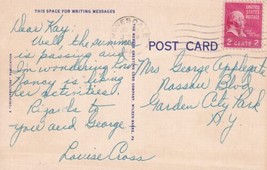 THIS SPACE FOR WRITING MESSAGES
Dear Kay,
Well, the summer
is passing and
I'm wondering how
Nancy is liking
her activities.
Regards to
you and George,
Louise Cross
POST CARD
UNITED STATES POSTAGE
2 CENTS 2
Mrs George Applegate
Nassau Blvd
Garden City Park
N.Y.